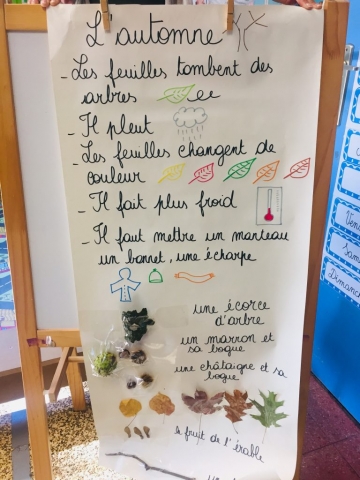 L'automne
- Les feuilles tombent des
arbres
- Il pleut
- Les feuilles changent de
couleur
- Il fait plus froid
- Il faut mettre un manteau
un bonnet, une écharpe
une écorce
d'arbre
un marron et
sa bogue
une châtaigne et sa
bogue
le fruit de l'érable
Dimanc